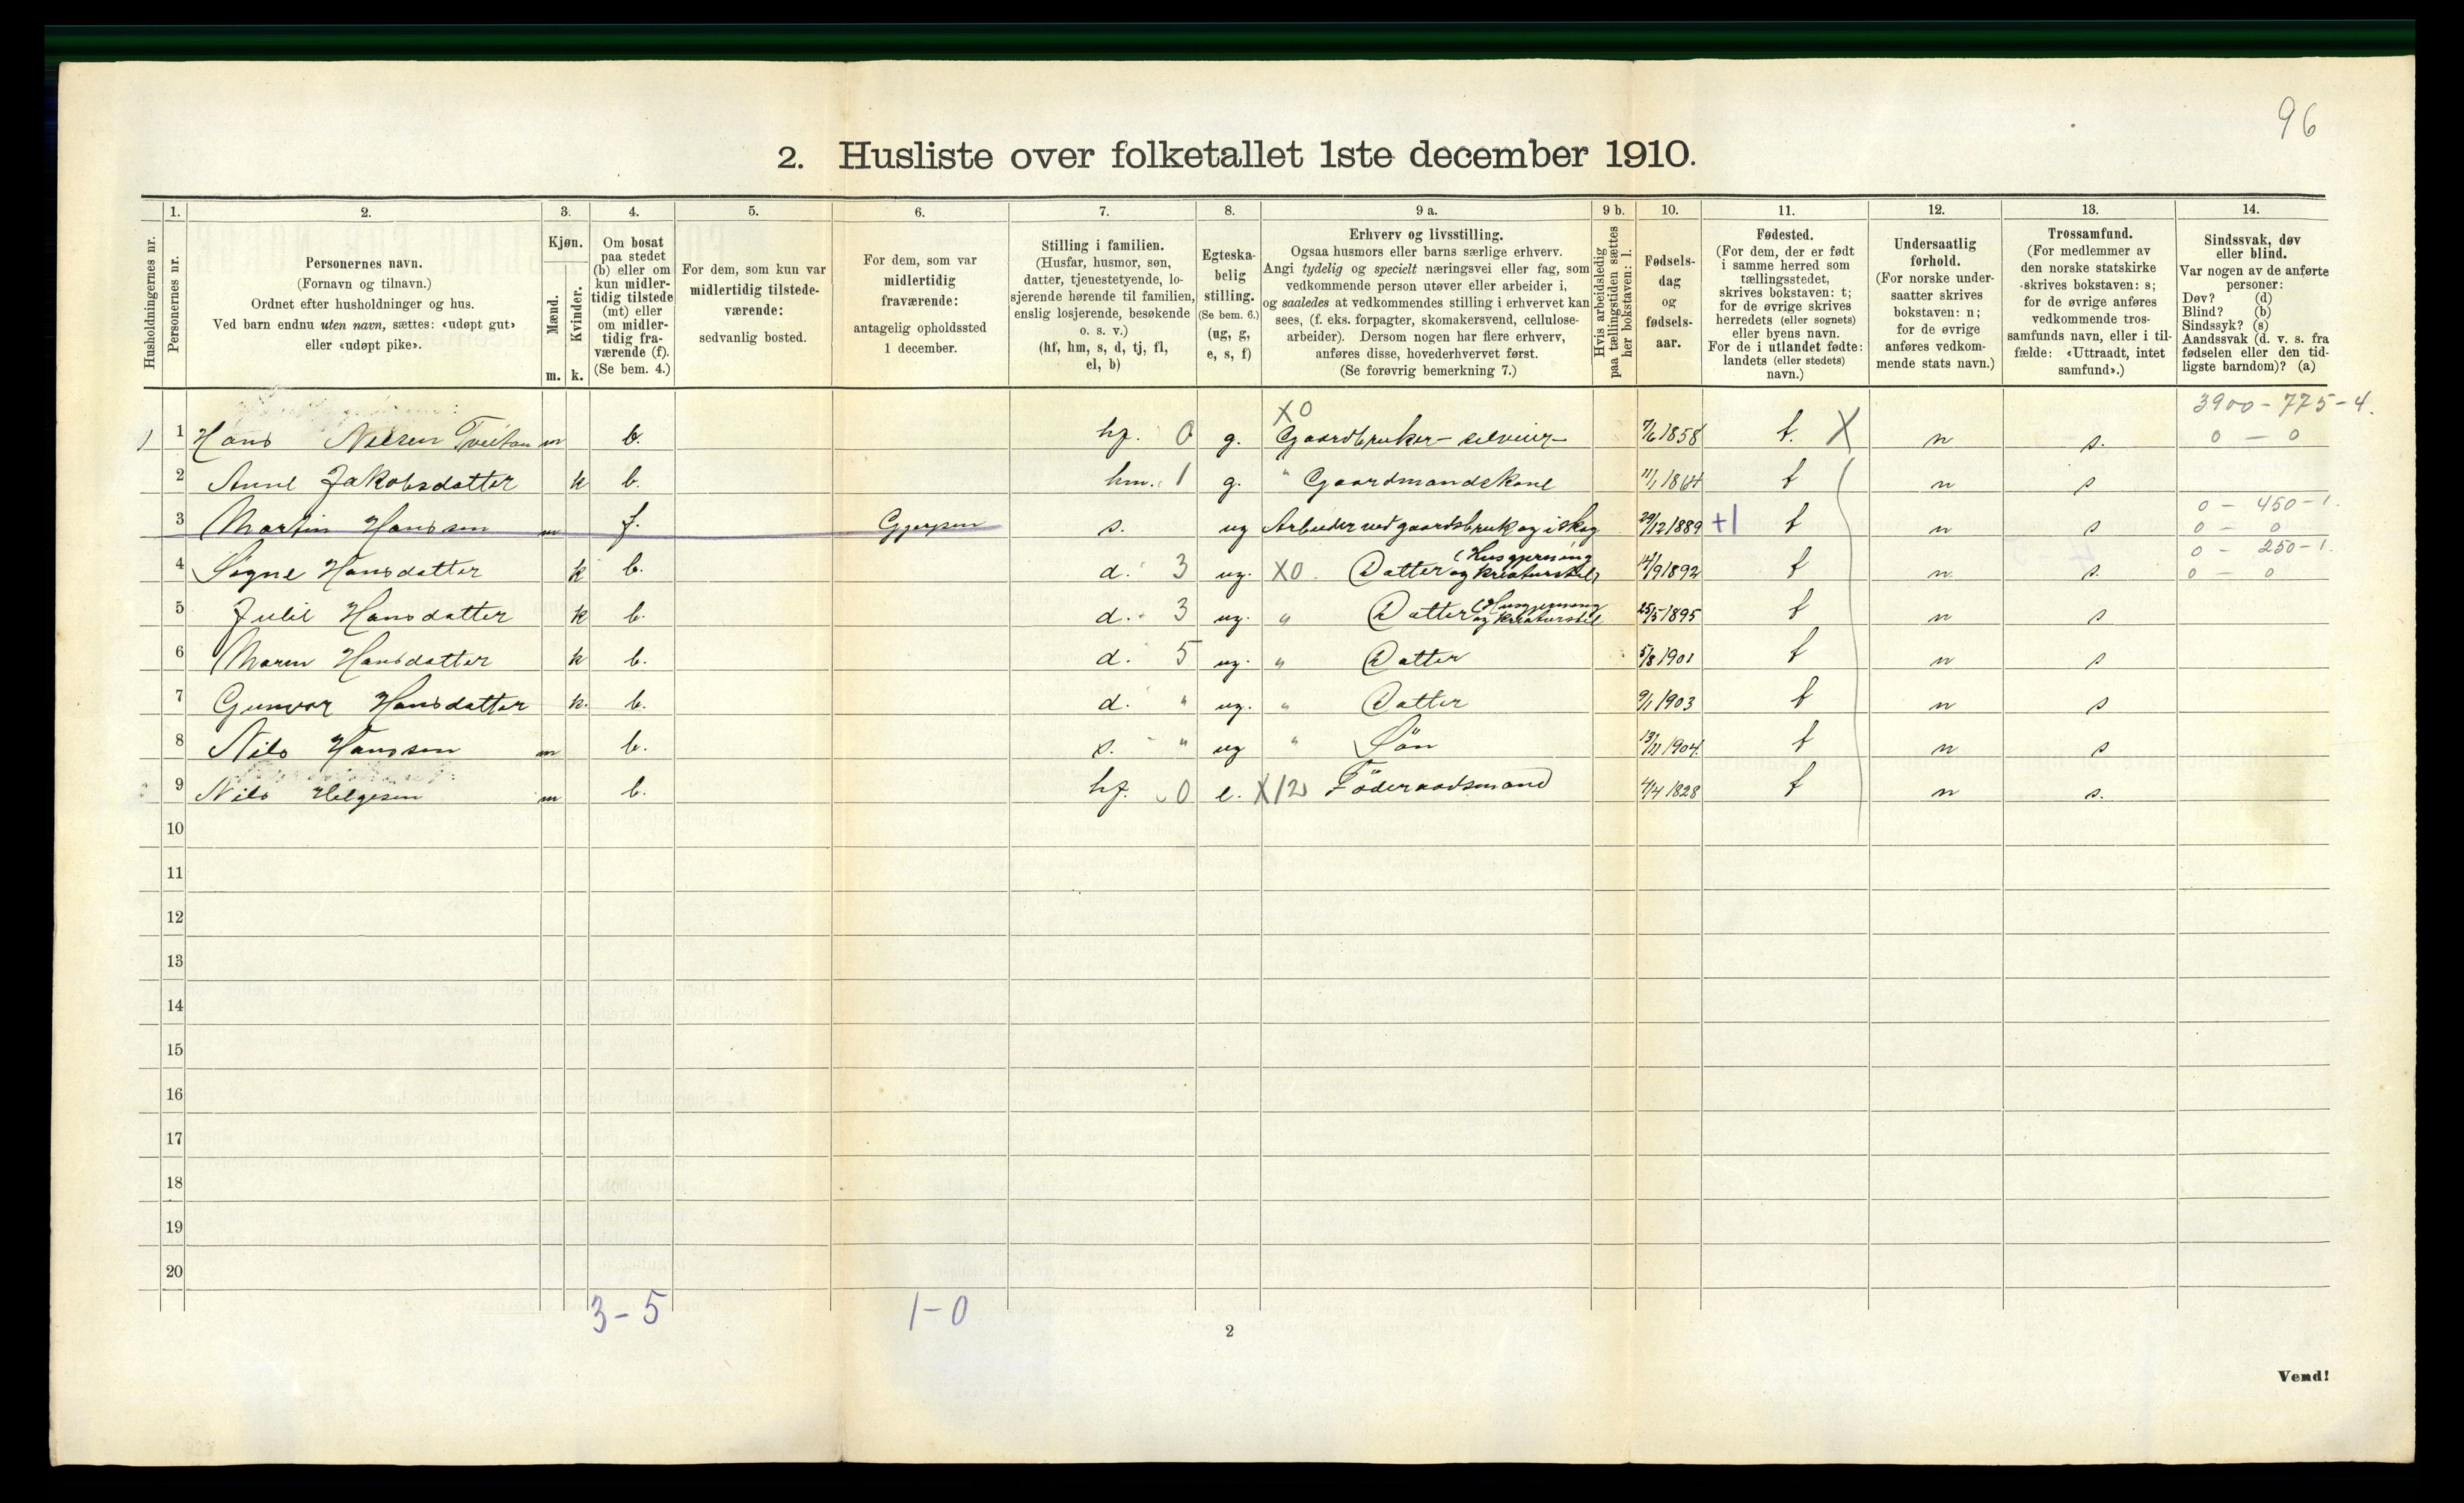 96
2. Husliste over folketallet 1ste december 1910.
Husholdningernes nr.
1. Personernes nr.
2. Personernes navn.
(Fornavn og tilnavn.)
Ordnet efter husholdninger og hus.
Ved barn endnu uten navn, sættes: «udøpt gut»
eller «udøpt pike».
3. Kjøn.
Mænd. m.
Kvinder. k.
4. Om bosat
paa stedet
(b) eller om
kun midler-
tidig tilstede
(mt) eller
om midler-
tidig fra-
værende (f).
(Se bem. 4.)
5. For dem, som kun var
midlertidig tilstede-
værende:
sedvanlig bosted.
6. For dem, som var
midlertidig
fraværende:
antagelig opholdssted
1 december.
7. Stilling i familien.
(Husfar, husmor, søn,
datter, tjenestetyende, lo-
sjerende hørende til familien,
enslig losjerende, besøkende
o. s. v.)
(hf, hm, s, d, tj, fl,
el, b)
8. Egteska-
belig
stilling.
(Se bem. 6.)
(ug, g,
e, s, f)
9 a. Erhverv og livsstilling.
Ogsaa husmors eller barns særlige erhverv.
Angi tydelig og specielt næringsvei eller fag, som
vedkommende person utøver eller arbeider i,
og saaledes at vedkommendes stilling i erhvervet kan
sees, (f. eks. forpagter, skomakersvend, cellulose-
arbeider). Dersom nogen har flere erhverv,
anføres disse, hovederhvervet først.
(Se forøvrig bemerkning 7.)
9 b. Hvis arbeidsledig
paa tællingstiden sættes
her bokstaven: l.
10. Fødsels-
dag
og
fødsels-
aar.
11. Fødested.
(For dem, der er født
i samme herred som
tællingsstedet,
skrives bokstaven: t;
for de øvrige skrives
herredets (eller sognets)
eller byens navn.
For de i utlandet fødte:
landets (eller stedets)
navn.)
12. Undersaatlig
forhold.
(For norske under-
saatter skrives
bokstaven: n;
for de øvrige
anføres vedkom-
mende stats navn.)
13. Trossamfund.
(For medlemmer av
den norske statskirke
skrives bokstaven: s;
for de øvrige anføres
vedkommende tros-
samfunds navn, eller i til-
fælde: «Uttraadt, intet
samfund».)
14. Sindssvak, døv
eller blind.
Var nogen av de anførte
personer:
Døv? (d)
Blind? (b)
Sindssyk? (s)
Aandssvak (d. v. s. fra
fødselen eller den tid-
ligste barndom)? (a)
X0 3900 - 775 - 4.
1 Hans Nilsen Tveitan m b. hf. 0 g. Gaardbruker - selveier - 7/6 1858 t. X n s. 0 - 0
2 Anne Jakobsdatter k b. hm. 1 g. " Gaardmandskone 11/1 1864 t n s
0 - 450 - 1.
3 Martin Hansson m f. Gjerpen s. ug Arbeider ved gaardsbruk og i skog 29/12 1889 +1 t n s 0 - 0
0 - 250 - 1.
4 Signe Hansdatter k b. d. 3 ug. X0 Datter (Husgjerning og kreaturstel) 14/9 1892 t n s. 0 - 0
5 Julie Hansdatter k b. d. 3 ug. " Datter (Husgjerning og kreaturstel 25/5 1895 t n s
6 Maren Hansdatter k b. d. 5 ug. " Datter 5/8 1901 t n s
7 Gunvor Hansdatter k. b. d. " ug. " Datter 9/1 1903 t n s
8 Nils Hansson m b. s. " ug " Søn 13/11 1904 t n s
9 Nils Helgesen m b. hf. 0 e. X12 Föderaadsmand 4/4 1828 t n s.
10
11
12
13
14
15
16
17
18
19
20
3 - 5 1 - 0
2
Vend!